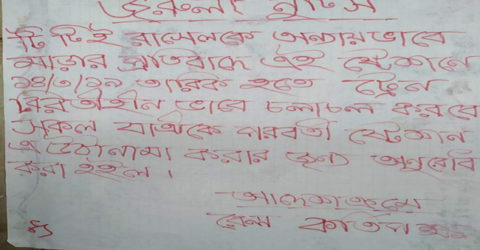 জরুরী নুটিস
টিটিই রাসেলকে অন্যায়ভাবে
মারার প্রতিবাদে এই ষ্টেশনে
১৪/৩/১৯ তারিক হতে ট্রেন
বিরতীহীন ভাবে চলাচল করবে
সকল যাত্রীকে পারবর্তী ষ্টেশন
এ উঠানামা করার জন্য অনুরোধ
করা হইল।
আদেশক্রমে
রেল কতিপক্ষ